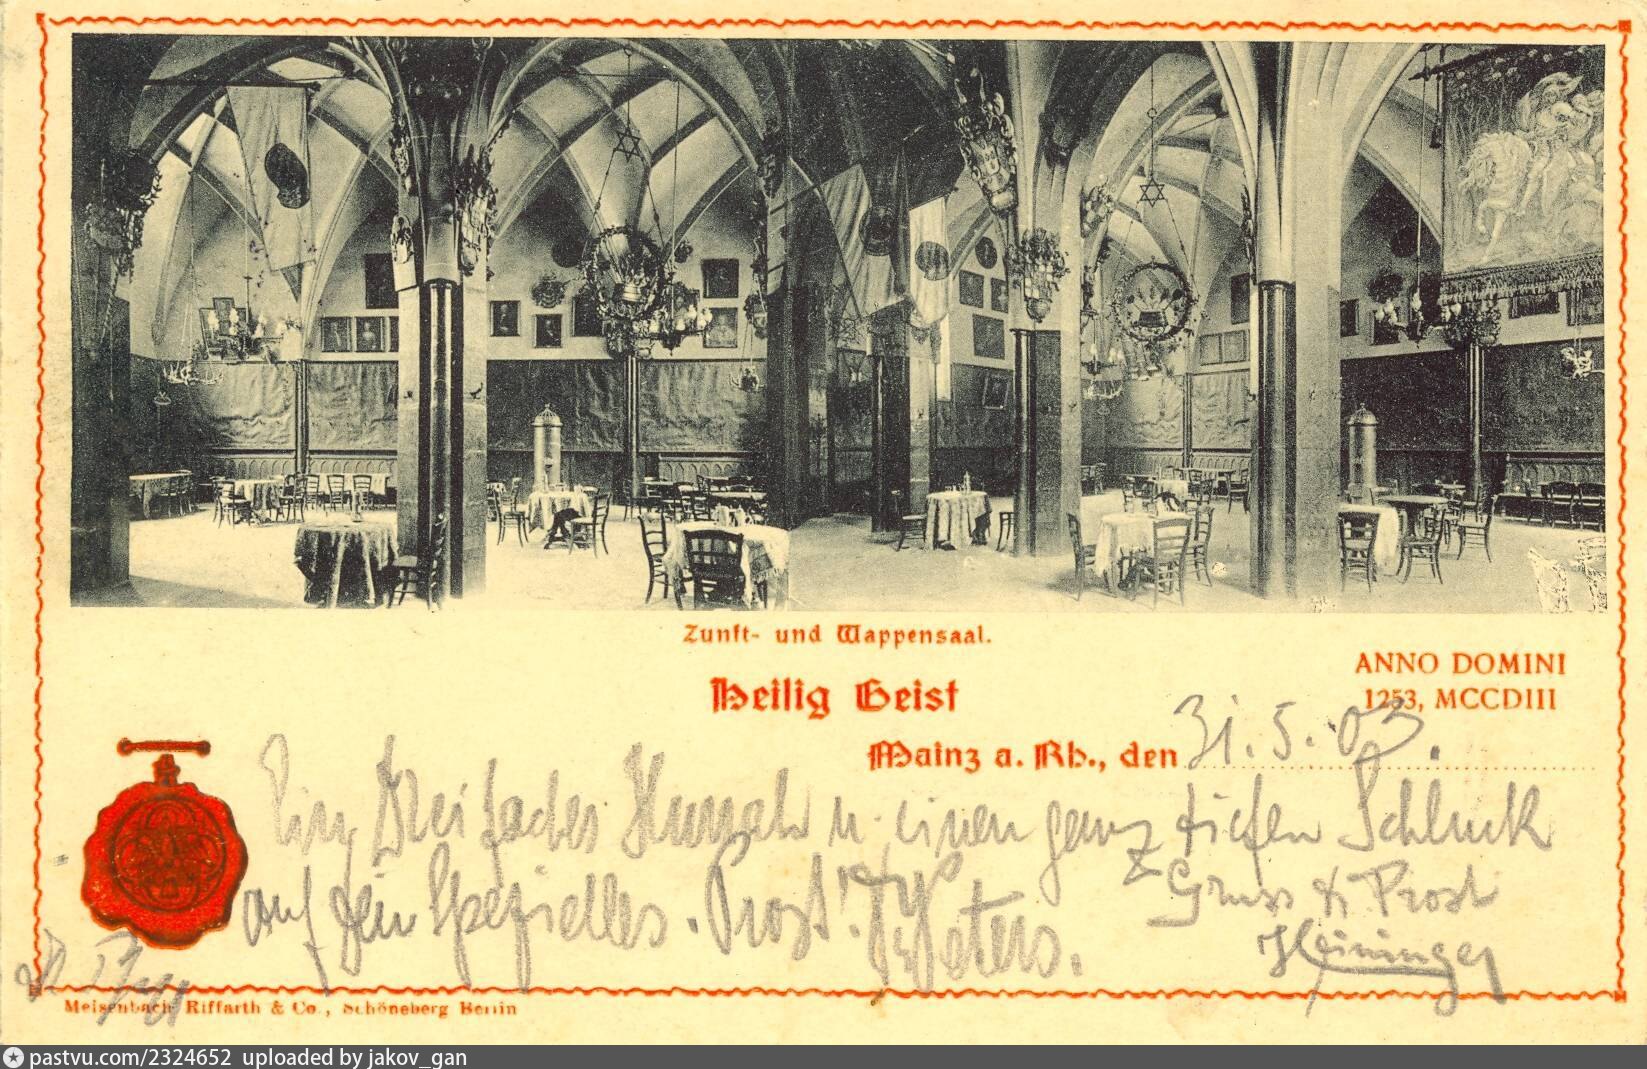 Zunft- und Wappensaal.
Heilig Geist
ANNO DOMINI
1253, MCCDIII
Mainz a. Rh., den 31.5.03.
Ein Dreifaches Hurrah u. einen ganz tiefen Schluck
auf Dein Spezielles. Prost! Peters.
Gruss & Prost
Heininger
Meisenbach Riffarth & Co., Schöneberg Berlin
pastvu.com/2324652 uploaded by jakov_gan